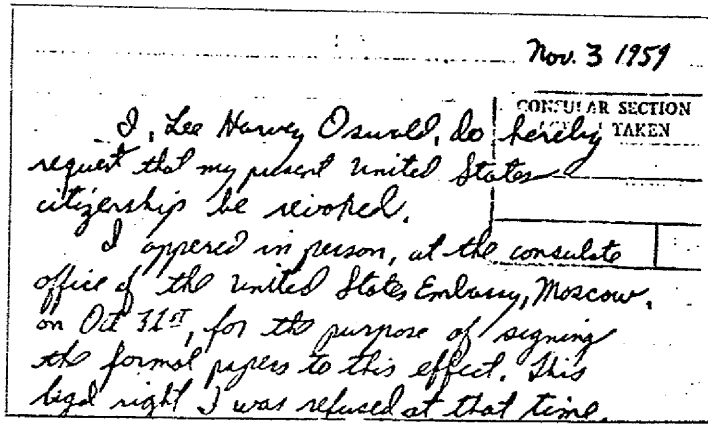 Nov. 3 1959
CONSULAR SECTION
TAKEN
I, Lee Harvey Oswald, do hereby
request that my present United States
citizenship be revoked.
I appered in person, at the consulate
office of the United States Embassy, Moscow,
on Oct 31st, for the purpose of signing
the formal papers to this effect. This
legal right I was refused at that time.